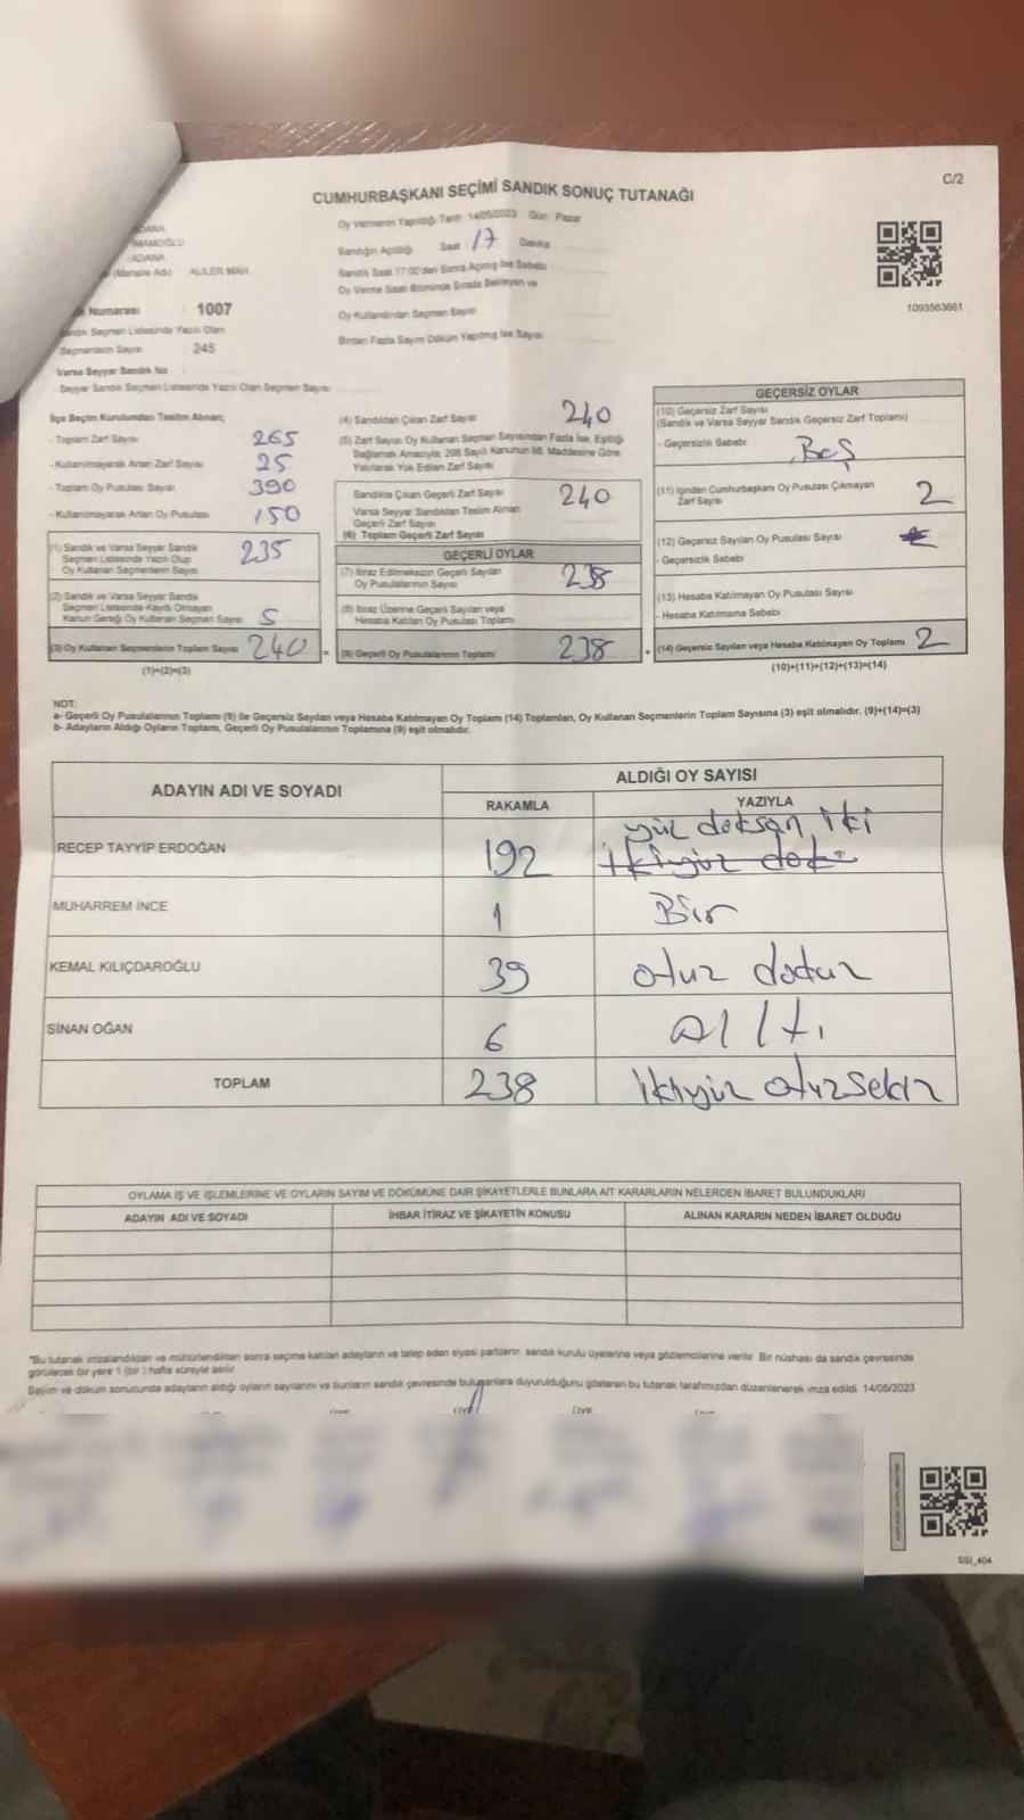 C/2
CUMHURBAŞKANI SEÇİMİ SANDIK SONUÇ TUTANAĞI
Oy Vermenin Yapıldığı Tarih 14/05/2023 Gün Pazar
ADANA
İMAMOĞLU
ADANA
(Mahalle Adı) ALİLER MAH.
Sandığın Açıldığı Saat 17 Dakika
Sandık Saat 17:00'den Sonra Açılmış İse Sebebi
Oy Verme Saati Bitiminde Sırada Bekleyen ve
Oy Kullandırılan Seçmen Sayısı
Birden Fazla Sayım Döküm Yapılmış İse Sayısı
1093563661
Numarası 1007
Sandık Seçmen Listesinde Yazılı Olan
Seçmenlerin Sayısı 245
Varsa Seyyar Sandık No
Seyyar Sandık Seçmen Listesinde Yazılı Olan Seçmen Sayısı
İlçe Seçim Kurulundan Teslim Alınan;
- Toplam Zarf Sayısı 265
- Kullanılmayarak Artan Zarf Sayısı 25
- Toplam Oy Pusulası Sayısı 390
- Kullanılmayarak Artan Oy Pusulası 150
(1) Sandık ve Varsa Seyyar Sandık
Seçmen Listesinde Yazılı Olup
Oy Kullanan Seçmenlerin Sayısı 235
(2) Sandık ve Varsa Seyyar Sandık
Seçmen Listesinde Kayıtlı Olmayan
Kanun Gereği Oy Kullanan Seçmen Sayısı 5
(3) Oy Kullanan Seçmenlerin Toplam Sayısı 240
(1)+(2)=(3)
(4) Sandıktan Çıkan Zarf Sayısı 240
(5) Zarf Sayısı Oy Kullanan Seçmen Sayısından Fazla İse, Eşitliği
Sağlamak Amacıyla, 298 Sayılı Kanunun 98. Maddesine Göre
Yakılarak Yok Edilen Zarf Sayısı
Sandıkta Çıkan Geçerli Zarf Sayısı 240
Varsa Seyyar Sandıktan Teslim Alınan
Geçerli Zarf Sayısı
(6) Toplam Geçerli Zarf Sayısı
GEÇERLİ OYLAR
(7) İtiraz Edilmeksizin Geçerli Sayılan
Oy Pusulalarının Sayısı 238
(8) İtiraz Üzerine Geçerli Sayılan veya
Hesaba Katılan Oy Pusulası Toplamı
(9) Geçerli Oy Pusulalarının Toplamı 238
GEÇERSİZ OYLAR
(10) Geçersiz Zarf Sayısı
(Sandık ve Varsa Seyyar Sandık Geçersiz Zarf Toplamı)
- Geçersizlik Sebebi Boş
(11) İçinden Cumhurbaşkanı Oy Pusulası Çıkmayan
Zarf Sayısı 2
(12) Geçersiz Sayılan Oy Pusulası Sayısı
- Geçersizlik Sebebi
(13) Hesaba Katılmayan Oy Pusulası Sayısı
- Hesaba Katılmama Sebebi
(14) Geçersiz Sayılan veya Hesaba Katılmayan Oy Toplamı 2
(10)+(11)+(12)+(13)=(14)
NOT:
a- Geçerli Oy Pusulalarının Toplamı (9) ile Geçersiz Sayılan veya Hesaba Katılmayan Oy Toplamı (14) Toplamları, Oy Kullanan Seçmenlerin Toplam Sayısına (3) eşit olmalıdır. (9)+(14)=(3)
b- Adayların Aldığı Oyların Toplamı, Geçerli Oy Pusulalarının Toplamına (9) eşit olmalıdır.
ADAYIN ADI VE SOYADI
ALDIĞI OY SAYISI
RAKAMLA YAZIYLA
RECEP TAYYİP ERDOĞAN 192 yüz doksan iki
ikiyüz dok
MUHARREM İNCE 1 Bir
KEMAL KILIÇDAROĞLU 39 otuz dokuz
SİNAN OĞAN 6 altı
TOPLAM 238 ikiyüz otuzsekiz
OYLAMA İŞ VE İŞLEMLERİNE VE OYLARIN SAYIM VE DÖKÜMÜNE DAİR ŞİKAYETLERLE BUNLARA AİT KARARLARIN NELERDEN İBARET BULUNDUKLARI
ADAYIN ADI VE SOYADI İHBAR İTİRAZ VE ŞİKAYETİN KONUSU ALINAN KARARIN NEDEN İBARET OLDUĞU
"Bu tutanak imzalandıktan ve mühürlendikten sonra seçime katılan adayların ve talep eden siyasi partilerin sandık kurulu üyelerine veya gözlemcilerine verilir. Bir nüshası da sandık çevresinde
görülecek bir yere 1 (bir) hafta süreyle asılır.
Sayım ve döküm sonucunda adayların aldığı oyların sayılarını ve bunların sandık çevresinde bulunanlara duyurulduğunu gösteren bu tutanak tarafımızdan düzenlenerek imza edildi. 14/05/2023
SSI_404